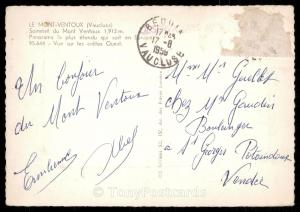 LE MONT-VENTOUX (Vaucluse)
Sommet du Mont Ventoux 1.912 m.
Panorama le plus étendu qui soit en
95.644 - Vue sur les crêtes Ouest.
BEDOIN
17-8
1959
VAUCLUSE
Un bonjour
du Mont Ventoux
Abel
Mme Mr Guillet
chez Mr Gaudin
Boulanger
à St Georges Pointindoux
Vendée
TonyPostcards